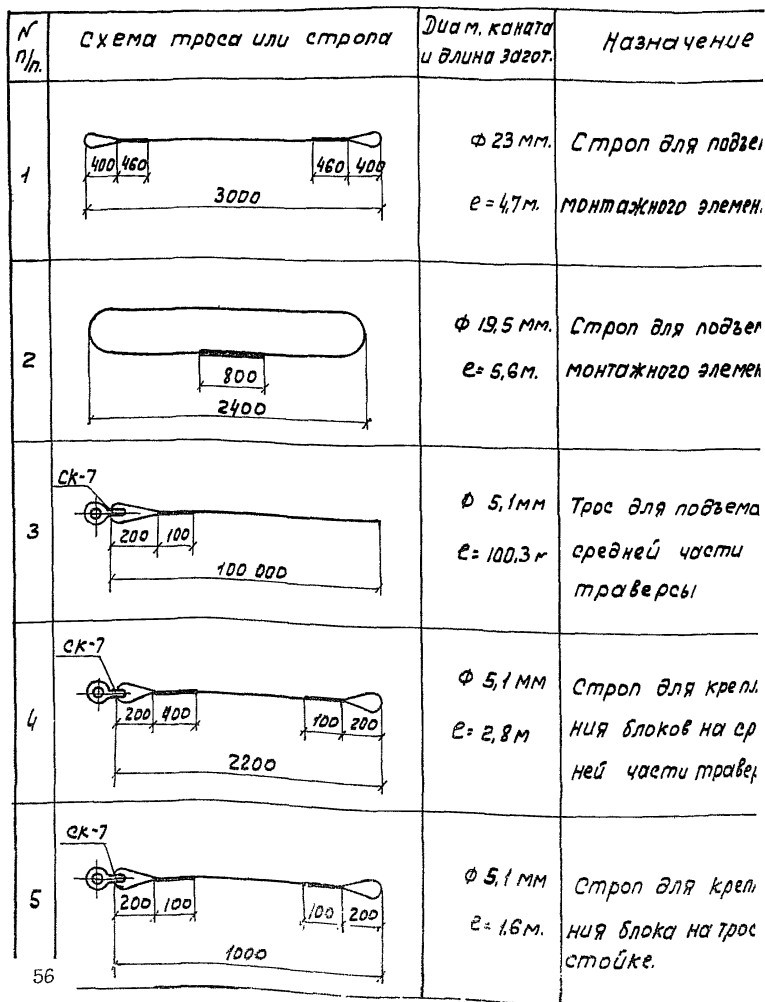 N п/п.
Схема троса или стропа
Диам. каната и длина загот.
Назначение
1
400 460 460 400
3000
ф 23 мм.
e = 4,7 м.
Строп для
монтажного
2
800
2400
ф 19,5 мм.
e = 5,6 м.
Строп для
монтажного
3
СК-7
200 100
100 000
ф 5,1 мм
e = 100,3 м
Трос для подъема
средней части
траверсы
4
СК-7
200 400 100 200
2200
ф 5,1 мм
e = 2,8 м
Строп для
ния блоков на
ней части
5
СК-7
200 100 100 200
1000
ф 5,1 мм
e = 1,6 м.
Строп для
ния блока на трос
стойке.
56